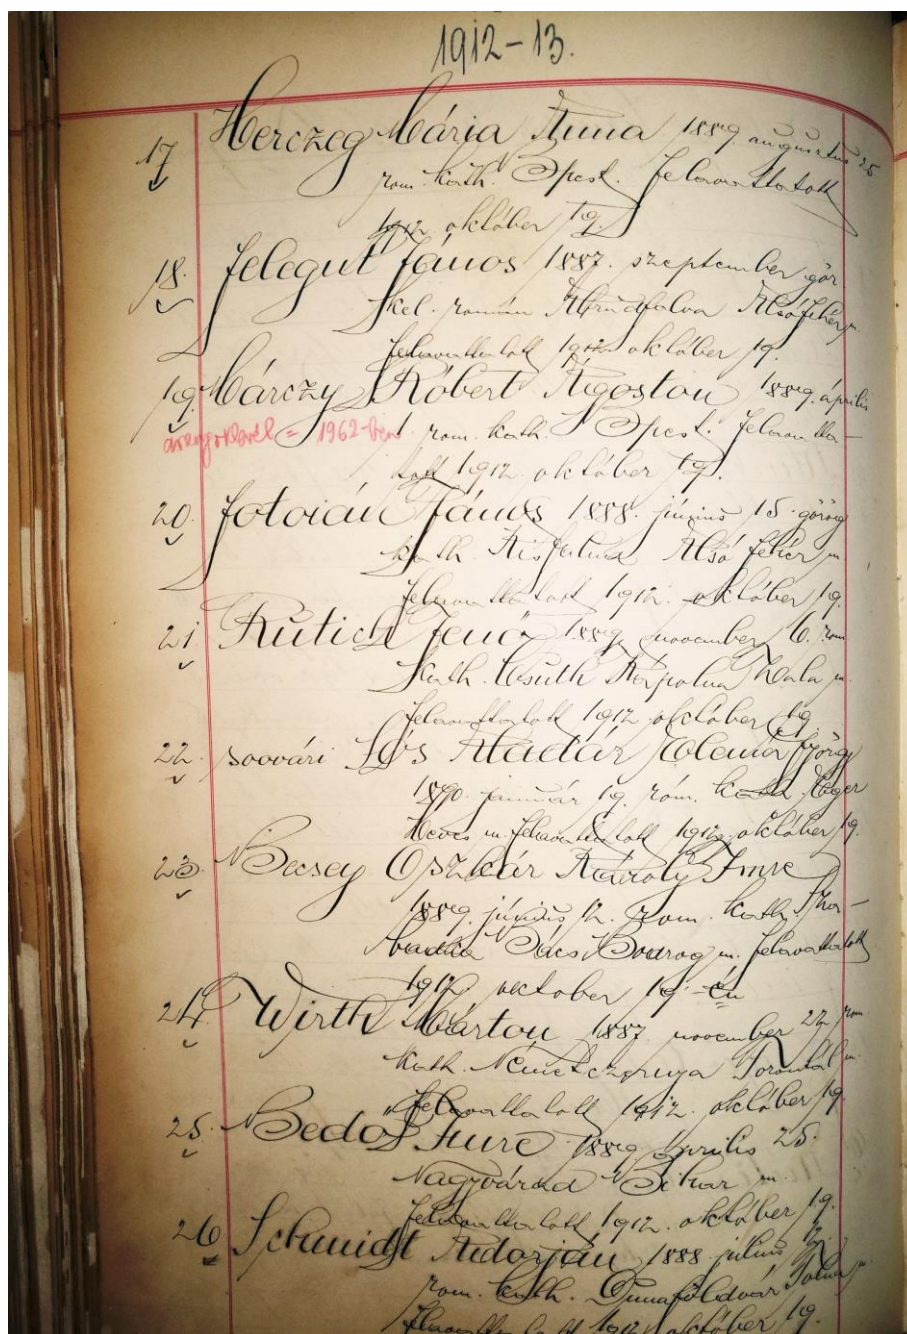 1912-13.
17 Herczeg Mária Anna 1889. augusztus 25
rom. kath. Bpest. felavattatott
1912. október 19.
18. Jelegut János 1887. szeptember gör
kel. román Abrudfalva Alsófehér m.
felavattatott 1912. október 19.
19. Bárczy Róbert Ágoston 1889. április
aranyoklevél = 1962-ben 1. rom. kath. Bpest. felavatta-
tott 1912. október 19.
20. Fotoián János 1888. június 15. görög
kath. Alsó fehér m
felavattatott 1912. október 19.
21. Jenő 1889. november 6. rom
kath. Zala m.
felavattatott 1912 október 19.
22. soovári Soós Aladár György
1890. január 19. róm. kath. Eger
Heves m. felavattatott 1912. október 19.
23. Becsey Oszkár Károly Imre
1889. június 12. rom. kath. Sza-
badka Bács Bodrog m. felavattatott
1912. october 19-én
24. Wirth Márton 1887 november 22. rom
kath. Németczernya Torontál m.
felavattatott 1912. október 19.
25. Bedő Imre 1889. április 25.
Nagyvárad Bihar m.
felavattatott 1912. október 19.
26 Schmidt Adorján 1888 július 12.
rom. kath. Dunaföldvár Tolna m.
felavattatott 1912 október 19.